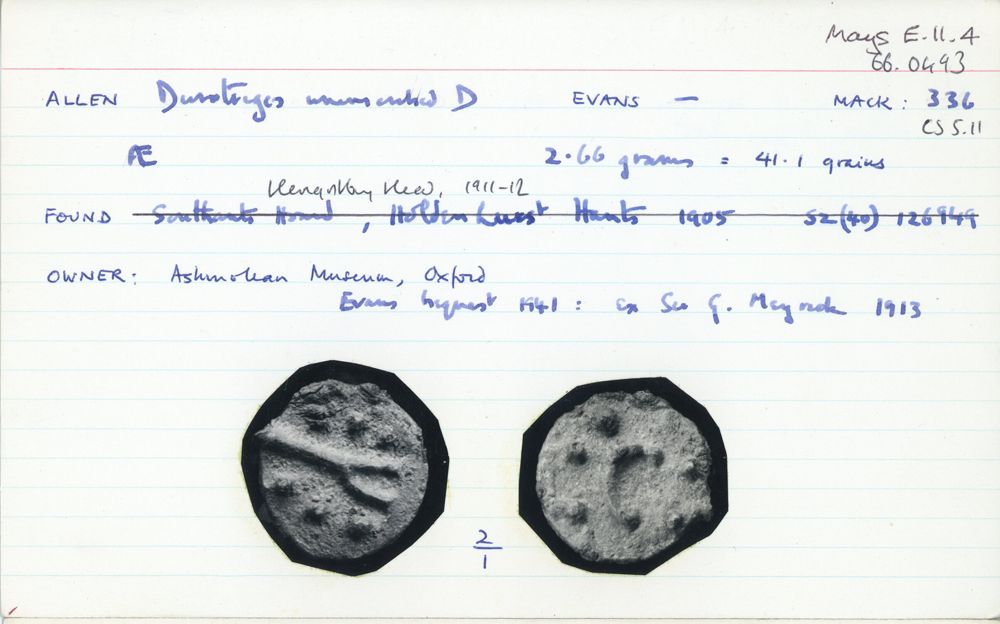 Mays E.11.4
66.0493
ALLEN Durotriges uninscribed D EVANS — MACK: 336
CS S.11
Æ 2.66 grams = 41.1 grains
Hengistbury Head, 1911-12
FOUND Southants Hoard, Holdenhurst Hants 1905 SZ(40) 126949
OWNER: Ashmolean Museum, Oxford
Evans bequest 1941: ex Sir G. Meyrick 1913
2
1